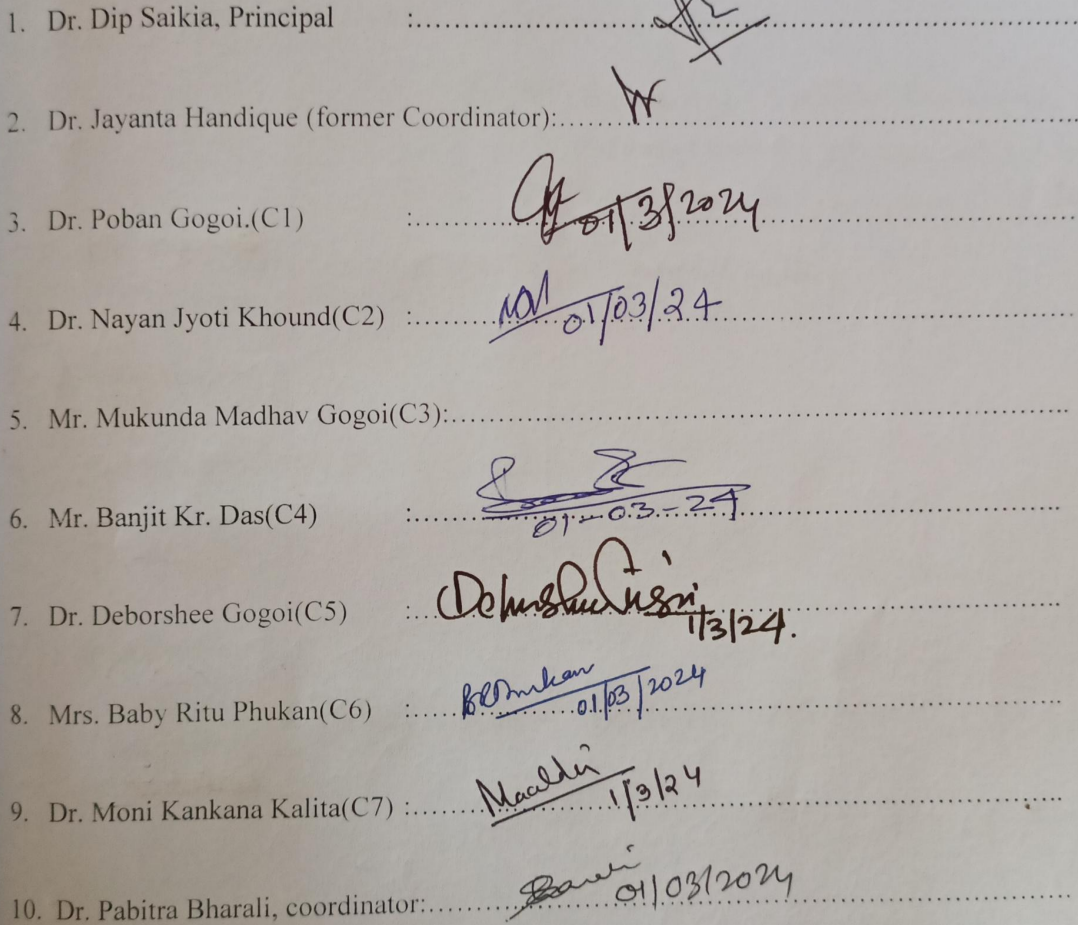 1. Dr. Dip Saikia, Principal :
2. Dr. Jayanta Handique (former Coordinator):
3. Dr. Poban Gogoi.(C1) : 01/3/2024
4. Dr. Nayan Jyoti Khound(C2) : 01/03/24
5. Mr. Mukunda Madhav Gogoi(C3):
6. Mr. Banjit Kr. Das(C4) : 01-03-24
7. Dr. Deborshee Gogoi(C5) : 1/3/24.
8. Mrs. Baby Ritu Phukan(C6) : 01/03/2024
9. Dr. Moni Kankana Kalita(C7) : 1/3/24
10. Dr. Pabitra Bharali, coordinator: 01/03/2024